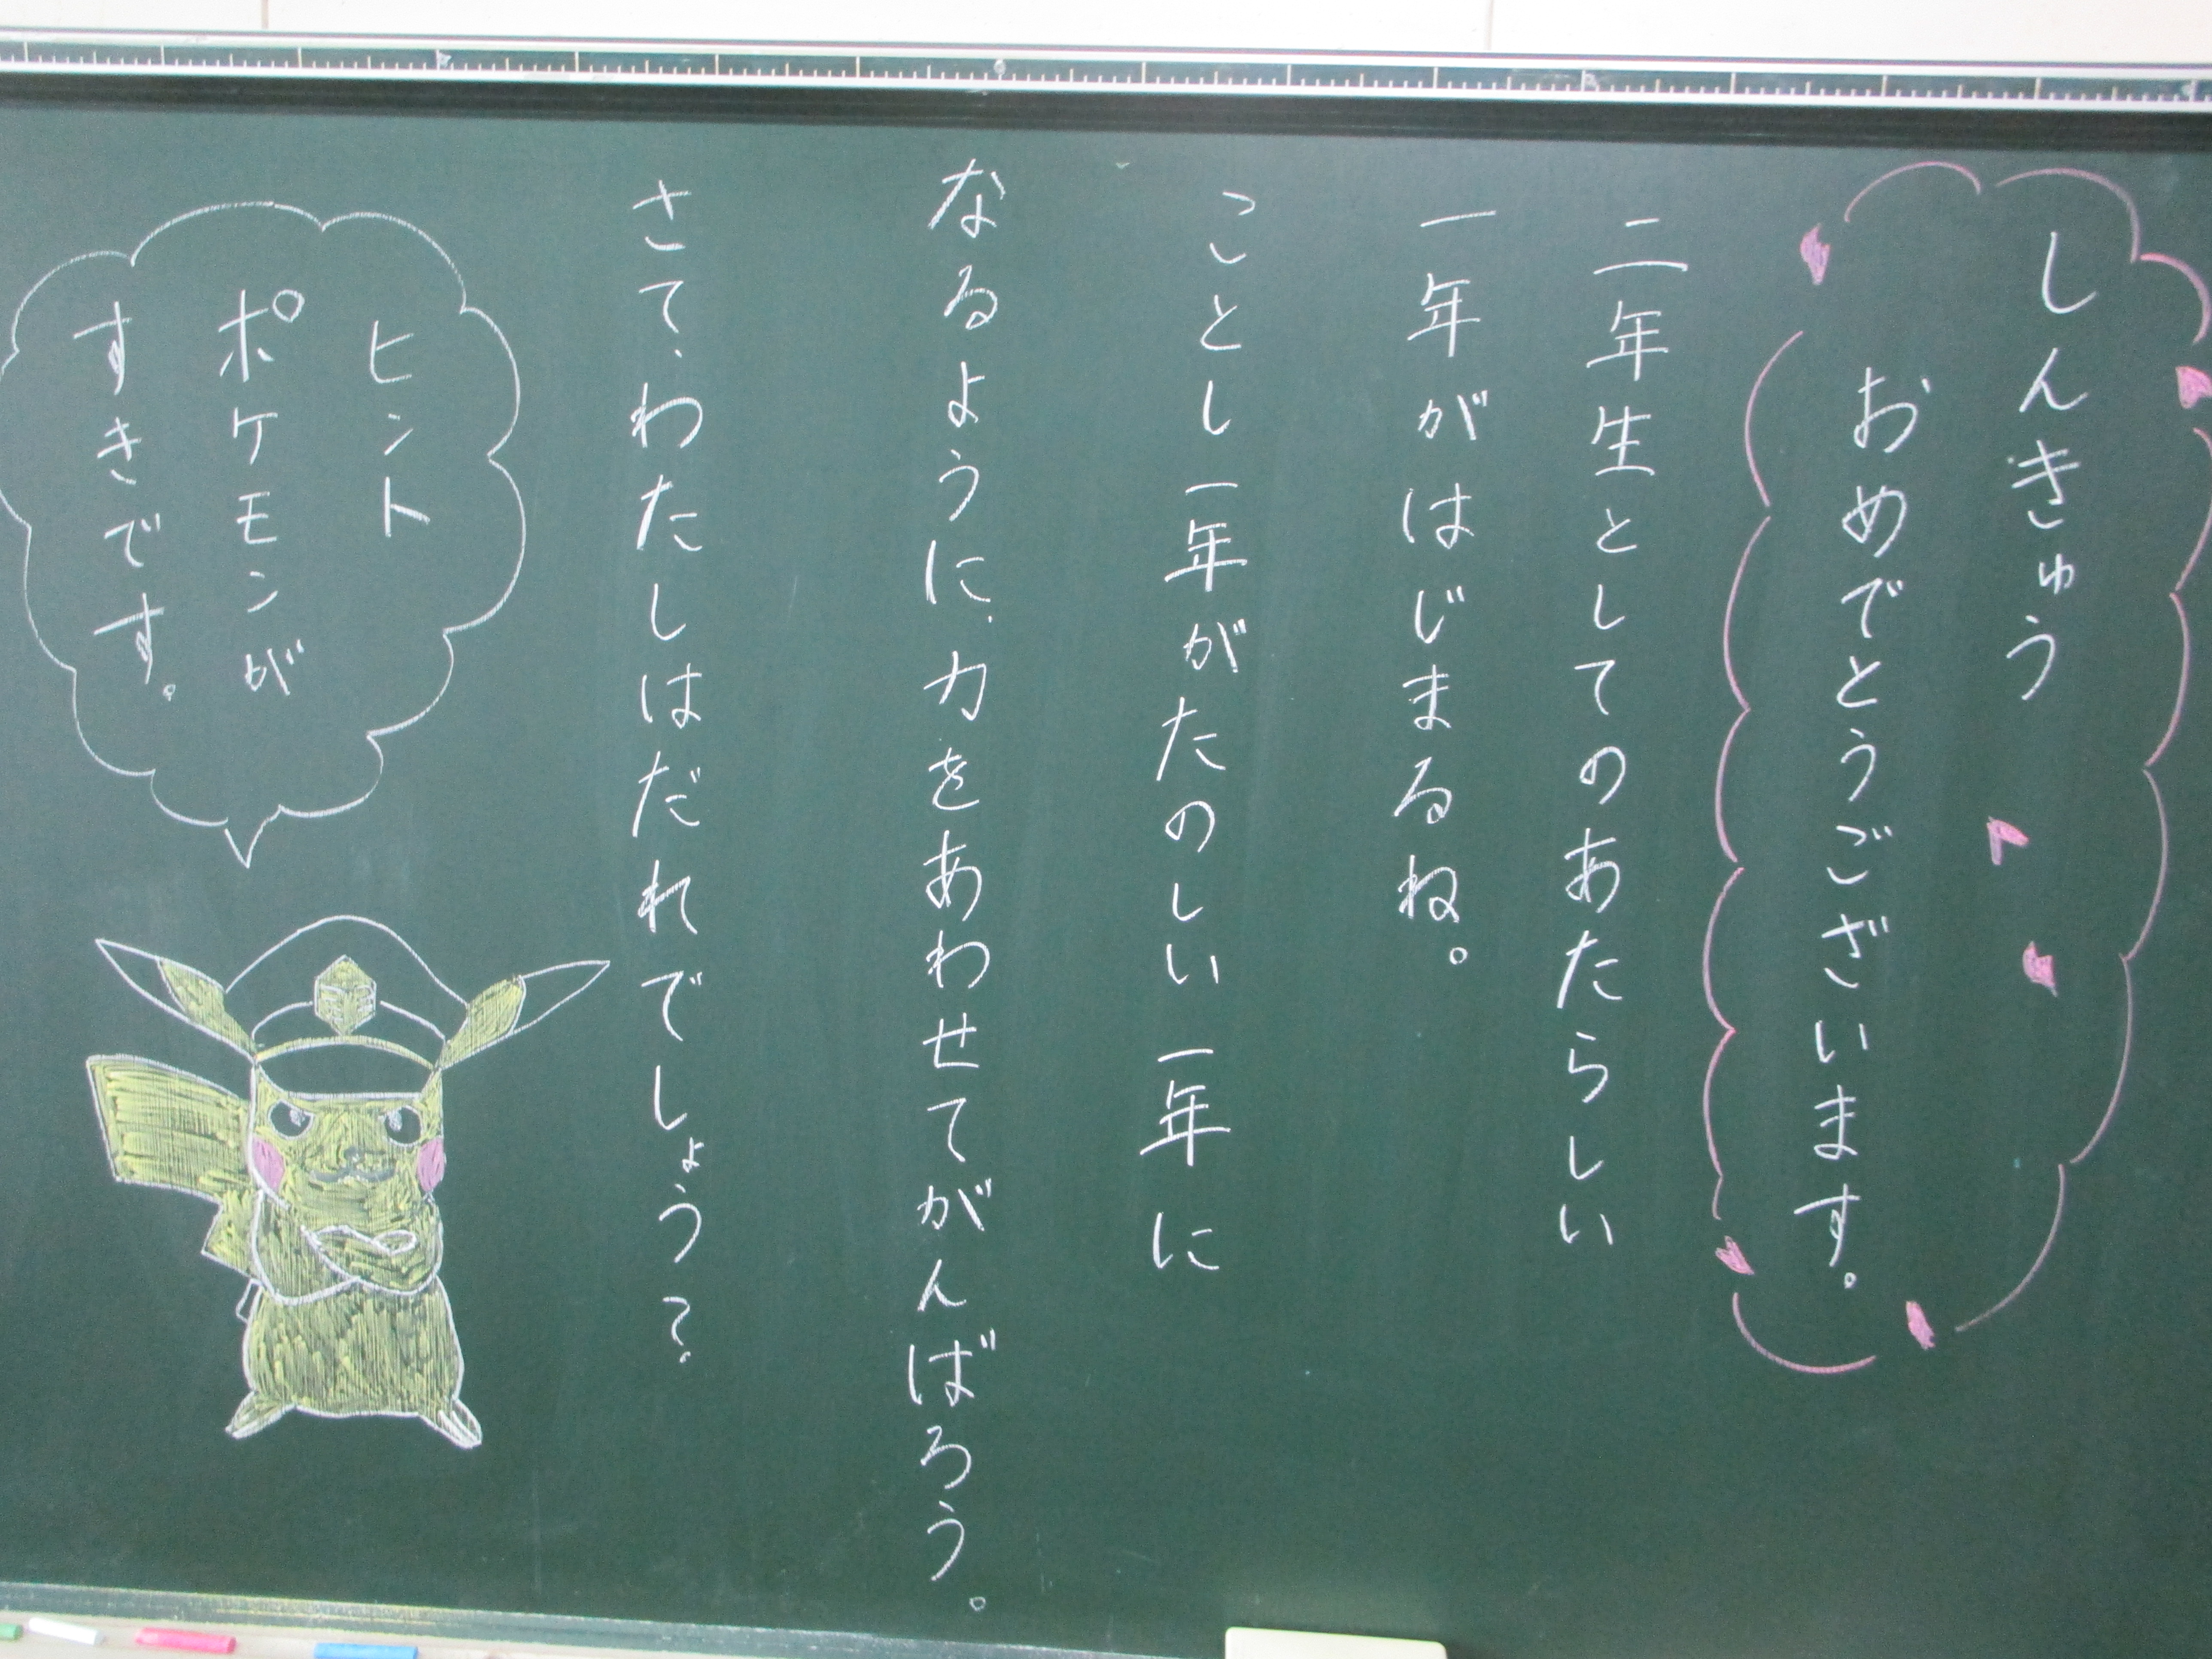 しんきゅう
おめでとうございます。
二年生としてのあたらしい
一年がはじまるね。
ことし一年がたのしい一年に
なるように、力をあわせてがんばろう。
さて、わたしはだれでしょう？
ヒント
ポケモンが
すきです。